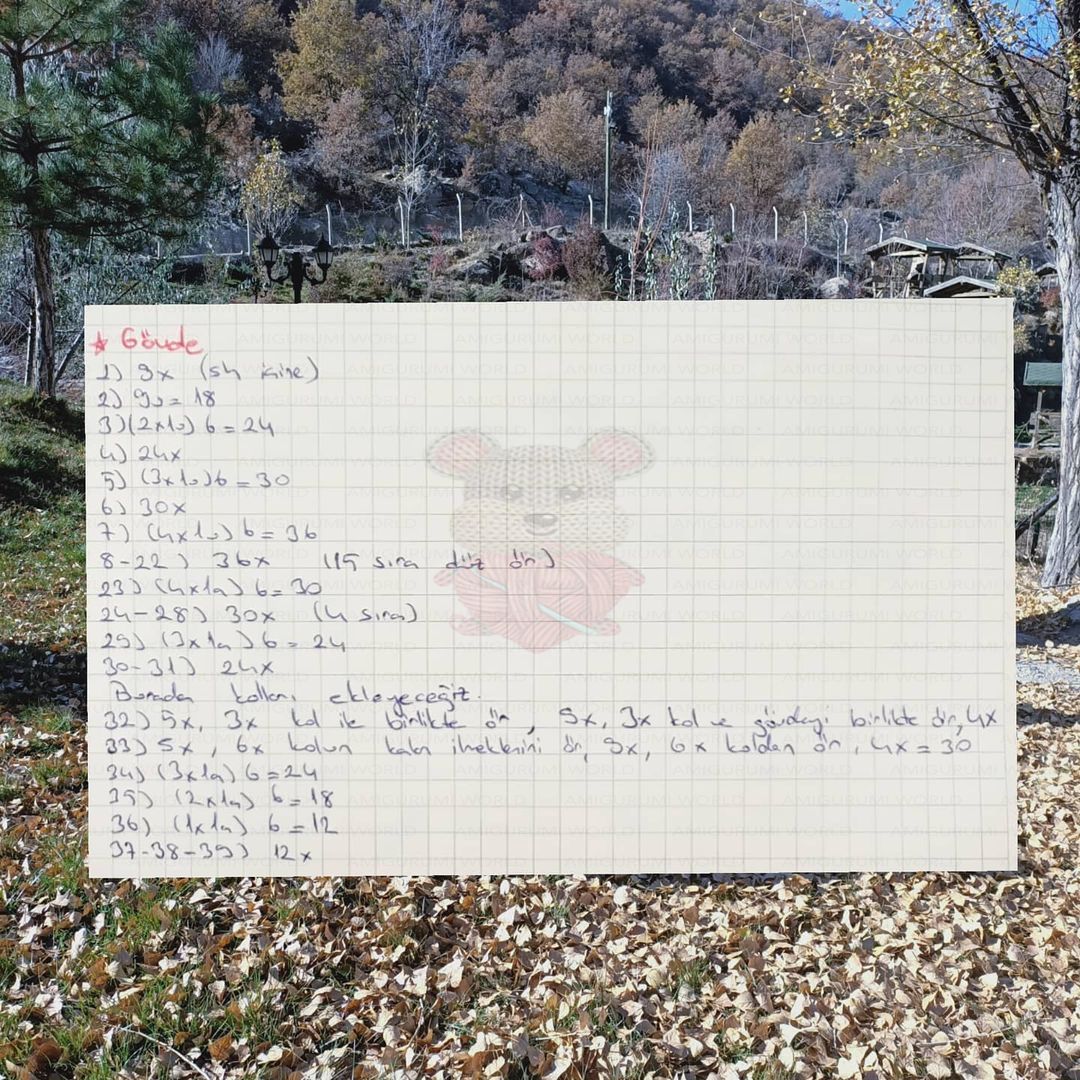 ★ Gövde
1) 9x (sh içine)
2) 9v = 18
3) (2x1v) 6 = 24
4) 24x
5) (3x1v) 6 = 30
6) 30x
7) (4x1v) 6 = 36
8-22) 36x (15 sıra düz ör)
23) (4x1a) 6 = 30
24-28) 30x (4 sıra)
29) (3x1a) 6 = 24
30-31) 24x
Burada kolları ekleyeceğiz.
32) 5x, 3x kol ile birlikte ör, 9x, 3x kol ve gövdeyi birlikte ör, 4x
33) 5x, 6x kolun kalan ilmeklerini ör, 9x, 6x koldan ör, 4x = 30
34) (3x1a) 6 = 24
35) (2x1a) 6 = 18
36) (1x1a) 6 = 12
37-38-39) 12x
AMIGURUMI WORLD